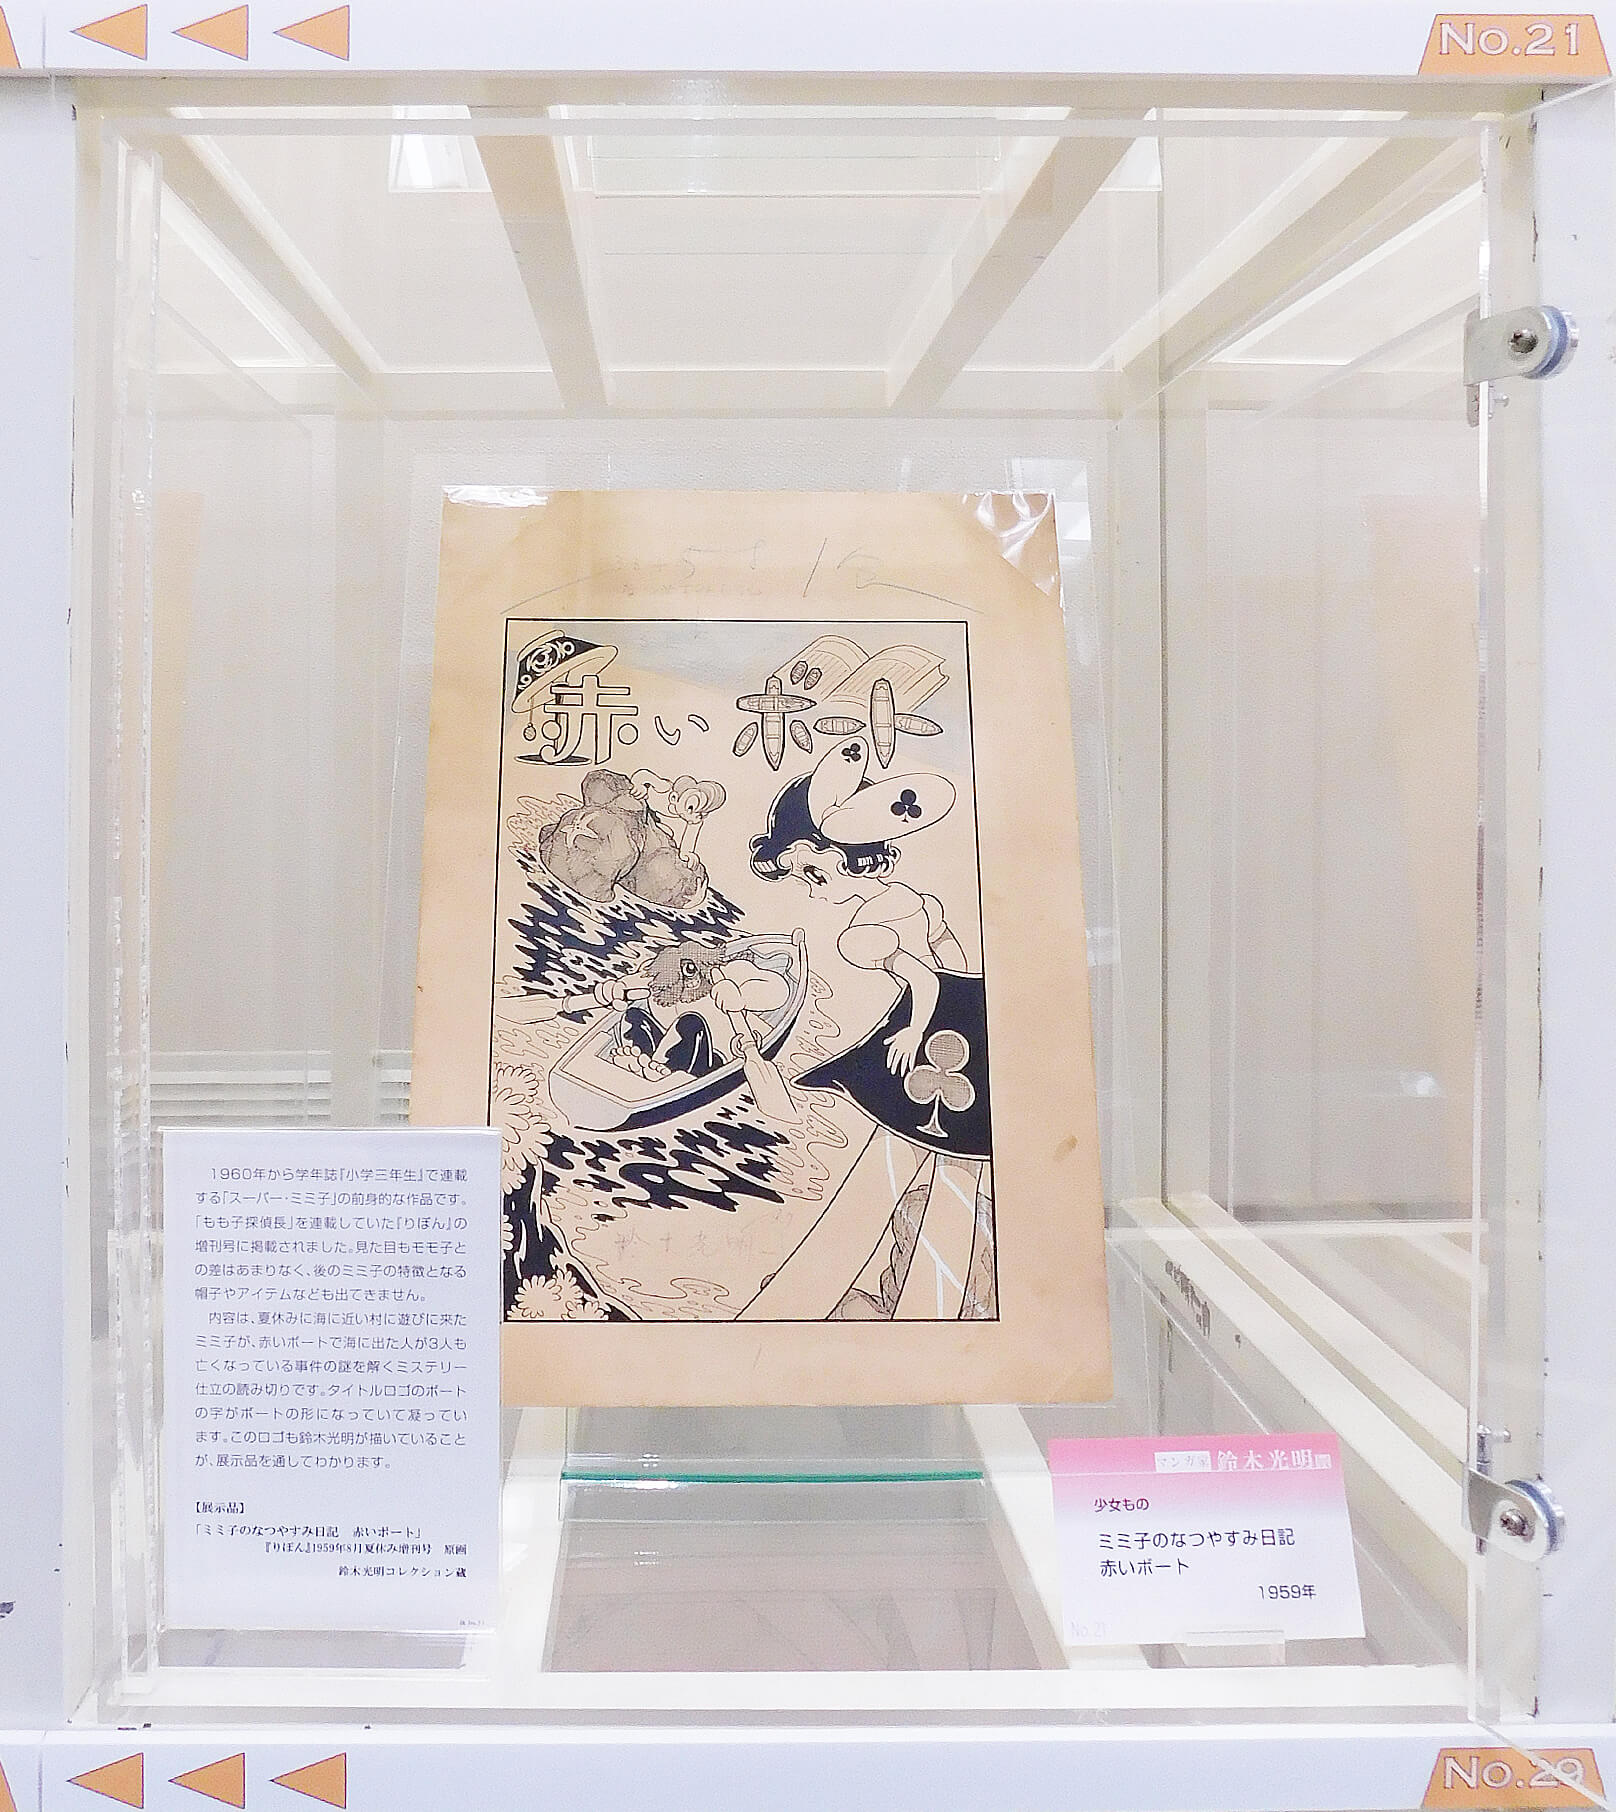 No.21
赤い ボート
1960年から学年誌『小学三年生』で連載
する「スーパー・ミミ子」の前身的な作品です。
「もも子探偵長」を連載していた『りぼん』の
増刊号に掲載されました。見た目もモモ子と
の差はあまりなく、後のミミ子の特徴となる
帽子やアイテムなども出てきません。
内容は、夏休みに海に近い村に遊びに来た
ミミ子が、赤いボートで海に出た人が3人も
亡くなっている事件の謎を解くミステリー
仕立の読み切りです。タイトルロゴのボート
の字がボートの形になっていて凝ってい
ます。このロゴも鈴木光明が描いていること
が、展示品を通してわかります。
【展示品】
「ミミ子のなつやすみ日記 赤いボート」
『りぼん』1959年8月夏休み増刊号 原画
鈴木光明コレクション蔵
マンガ家 鈴木光明展
少女もの
ミミ子のなつやすみ日記
赤いボート
1959年
No.21
No.29